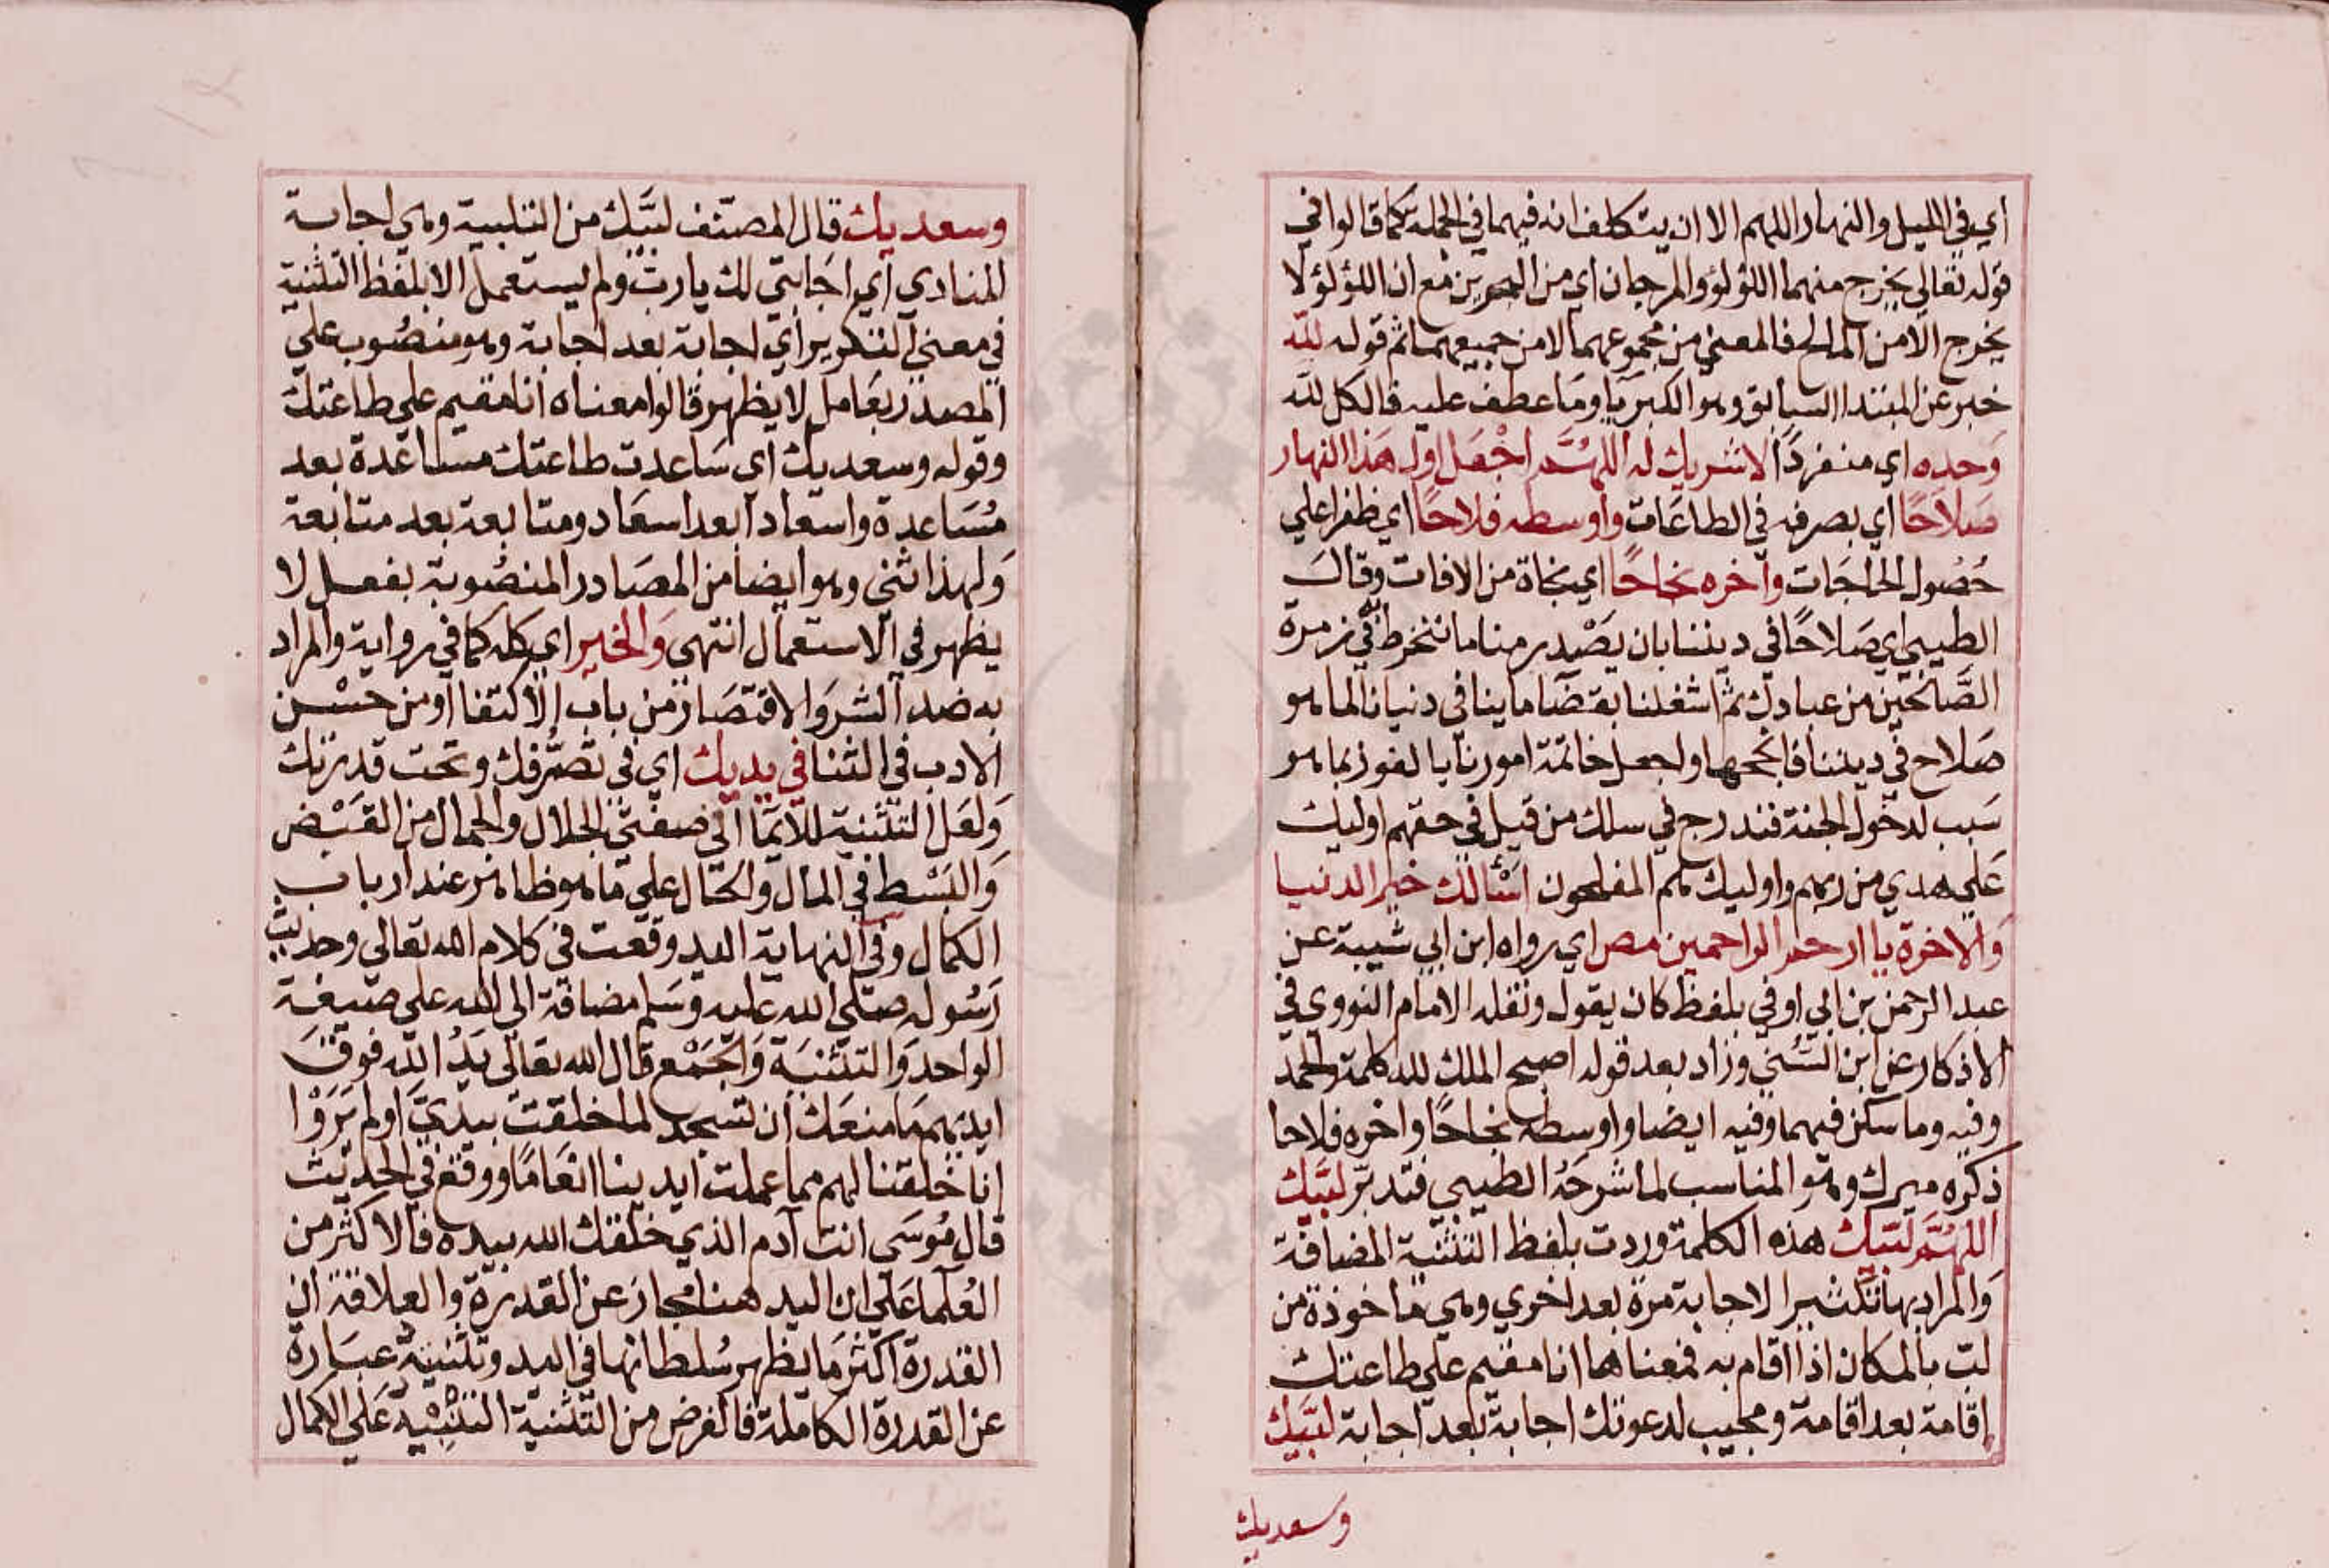 اي في الليل والنهار اللهم الا ان يتكلف انه فيهما في الجملة كما قالوا في
قوله تعالي يخرج منهما اللؤلؤ والمرجان اي من البحرين مع ان اللؤلؤ لا
يخرج الا من المالح فالمعني من مجموعهما لا من جميعهما ثم قوله لله
خبر عن المبتدا السابق وهو الكبريا وما عطف عليه فالكل لله
وحده اي منفردا لا شريك له اللهم اجعل اول هذا النهار
صلاحا اي بصرفه في الطاعات واوسطه فلاحا اي ظفرا علي
حصول الحاجات وآخره نجاحا اي نجاة من الافات وقال
الطيبي اي صلاحا في ديننا بان يصدر منا ما ننخرط في زمرة
الصالحين من عبادك ثم اشغلنا بقضا ماربنا في دنيانا لما هو
صلاح في ديننا فانجحها واجعل خاتمة امورنا بالفوز بما هو
سبب لدخول الجنة فندرج في سلك من قيل في حقهم اوليك
علي هدي من ربهم واوليك هم المفلحون اسْألك خير الدنيا
والاخرة يا ارحم الراحمين مص اي رواه ابن ابي شيبة عن
عبد الرحمن بن ابي اوفي بلفظ كان يقول ونقله الامام النووي في
الاذكار عن ابن السُّني وزاد بعد قوله اصبح الملك لله كلمة والحمد
وفيه وما سكن فيهما وفيه ايضا واوسطه نجاحا واخره فلاحا
ذكره ميرك وهو المناسب لما شرحه الطيبي فتدبر لبيك
اللهم لبيك هذه الكلمة وردت بلفظ التثنية المضافة
والمراد بها تكثير الاجابة مرة بعد اخري وهي ماخوذة من
لبّ بالمكان اذا اقام به فمعناها انا مقيم علي طاعتك
اقامة بعد اقامة ومجيب لدعوتك اجابة بعد اجابة لبيك
وسعديك
وسعديك قال المصنف لبيك من التلبية وهي اجابة
المنادي اي اجابتي لك يا رب ولم يستعمل الا بلفظ التثنية
في معني التكرير اي اجابة بعد اجابة وهو منصوب علي
المصدر بعامل لا يظهر قالوا معناه انا مقيم علي طاعتك
وقوله وسعديك اي ساعدت طاعتك مساعدة بعد
مساعدة واسعادا بعد اسعاد ومتابعة بعد متابعة
ولهذا ثني وهو ايضا من المصادر المنصوبة بفعل لا
يظهر في الاستعمال انتهي والخير اي كله كما في رواية والمراد
به ضد الشر والاقتصار من باب الاكتفا او من حسن
الادب في الثنا في يديك اي في تصرفك وتحت قدرتك
ولعل التثنية للايما الي صفتي الجلال والجمال من القبض
والبسط في المال والحال علي ما هو ظاهر عند ارباب
الكمال وفي النهاية اليد وقعت في كلام الله تعالي وحديث
رسوله صلي الله عليه وسلم مضافة الي الله علي صيغة
الواحد والتثنية والجمع قال الله تعالي يد الله فوق
ايديهم ما منعك ان تسجد لما خلقت بيديَّ اولم يروا
انا خلقنا لهم مما عملت ايدينا انعاما ووقع في الحديث
قال موسي انت آدم الذي خلقك الله بيده فالاكثر من
العلما علي ان اليد هنا مجاز عن القدرة والعلاقة ان
القدرة اكثر ما يظهر سلطانها في اليد وتثنيته عبارة
عن القدرة الكاملة فالغرض من التثنية التنبيه علي الكمال